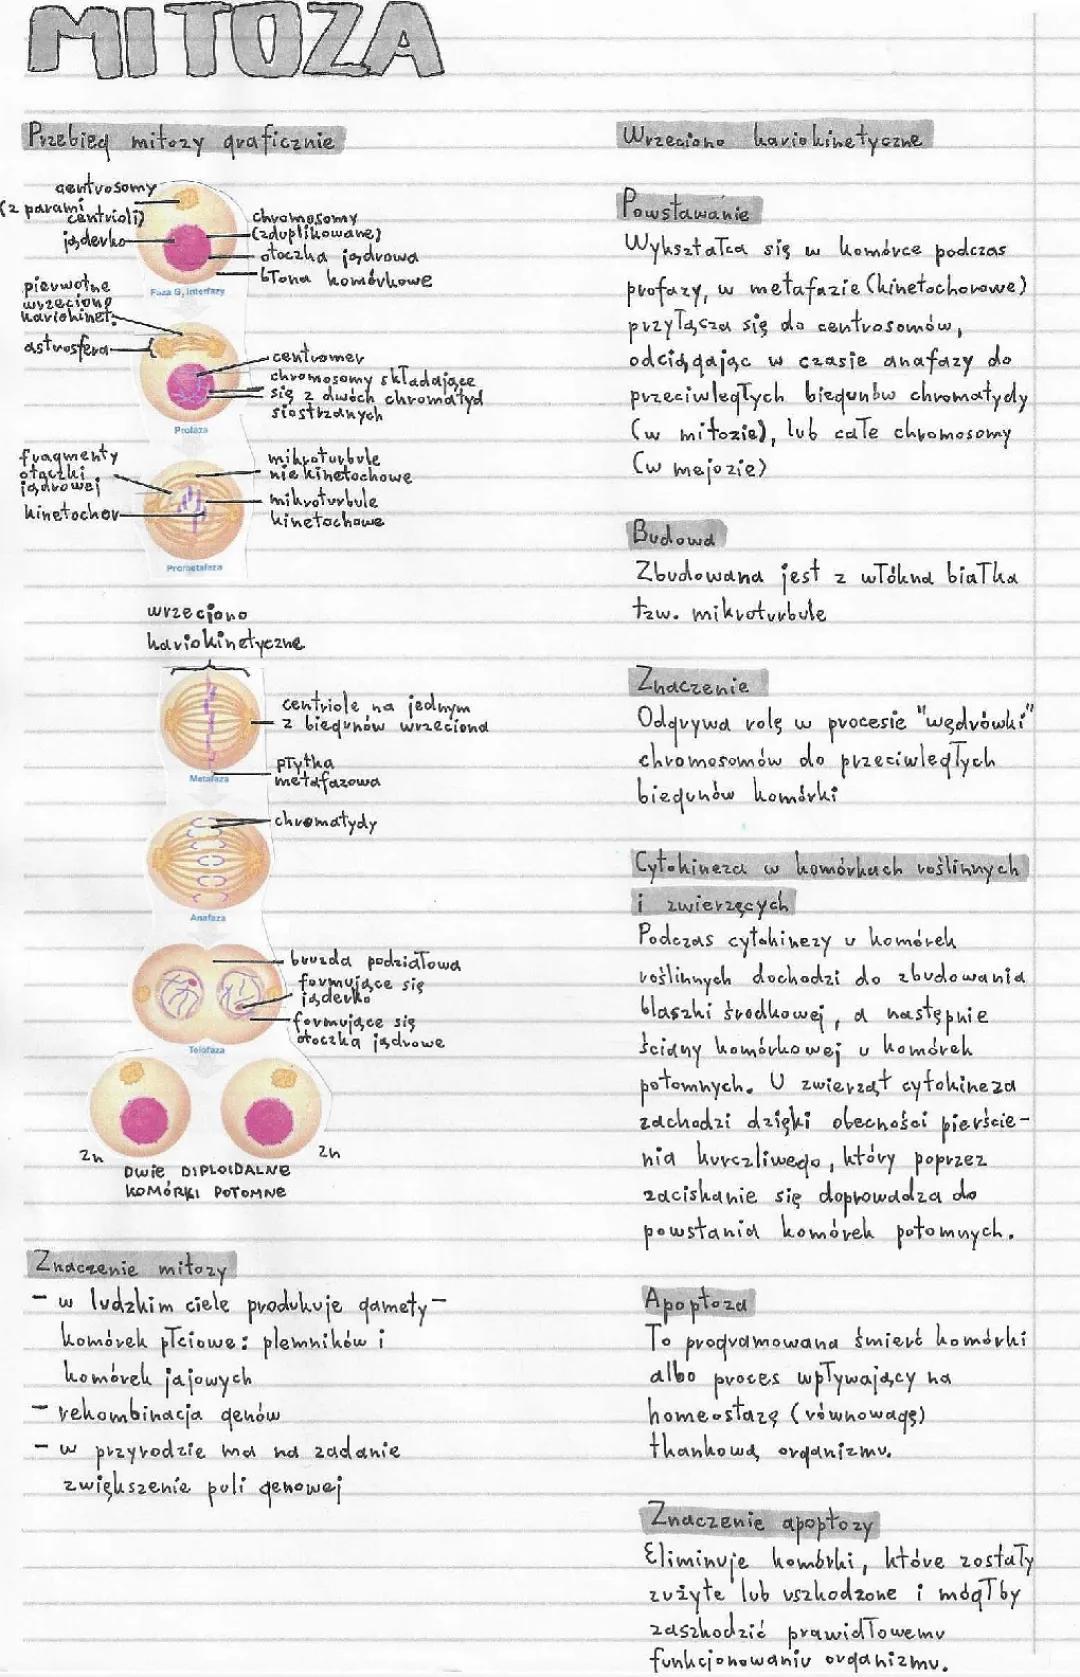 MITOZA
Przebieg mitozy graficznie
centrosomy
(z parami
centrioli)
jąderko
chromosomy
(zduplikowane)
otoczka jądrowa
błona komórkowa
Faza G₂ interfazy
pierwotne
wrzeciono
kariokinet.
astrosfera
centromer
chromosomy składające
się z dwóch chromatyd
siostrzanych
Profaza
fragmenty
otoczki
jądrowej
kinetochor
mikroturbule
niekinetochowe
mikroturbule
kinetochowe
Prometafaza
wrzeciono
kariokinetyczne
centriole na jednym
z biegunów wrzeciona
płytka
metafazowa
Metafaza
chromatydy
Anafaza
bruzda podziałowa
formujące się
jąderko
formujące się
otoczka jądrowe
Telofaza
2n
2n
DWIE DIPLOIDALNE
KOMÓRKI POTOMNE
Znaczenie mitozy
- w ludzkim ciele produkuje gamety-
komórek płciowe: plemników i
komórek jajowych
- rekombinacja genów
- w przyrodzie ma na zadanie
zwiększenie puli genowej
Wrzeciono kariokinetyczne
Powstawanie
Wykształca się w komórce podczas
profazy, w metafazie (kinetochorowe)
przyłącza się do centrosomów,
odciągając w czasie anafazy do
przeciwległych biegunów chromatydy
(w mitozie), lub całe chromosomy
(w mejozie)
Budowa
Zbudowana jest z włókna białka
tzw. mikroturbule
Znaczenie
Odgrywa rolę w procesie "wędrówki"
chromosomów do przeciwległych
biegunów komórki
Cytokineza w komórkach roślinnych
i zwierzęcych
Podczas cytokinezy u komórek
roślinnych dochodzi do zbudowania
blaszki środkowej, a następnie
ściany komórkowej u komórek
potomnych. U zwierząt cytokineza
zachodzi dzięki obecności pierście-
nia kurczliwego, który poprzez
zaciskanie się doprowadza do
powstania komórek potomnych.
Apoptoza
To programowana śmierć komórki
albo proces wpływający na
homeostazę (równowagę)
tkankową organizmu.
Znaczenie apoptozy
Eliminuje komórki, które zostały
zużyte lub uszkodzone i mógłby
zaszkodzić prawidłowemu
funkcjonowaniu organizmu.